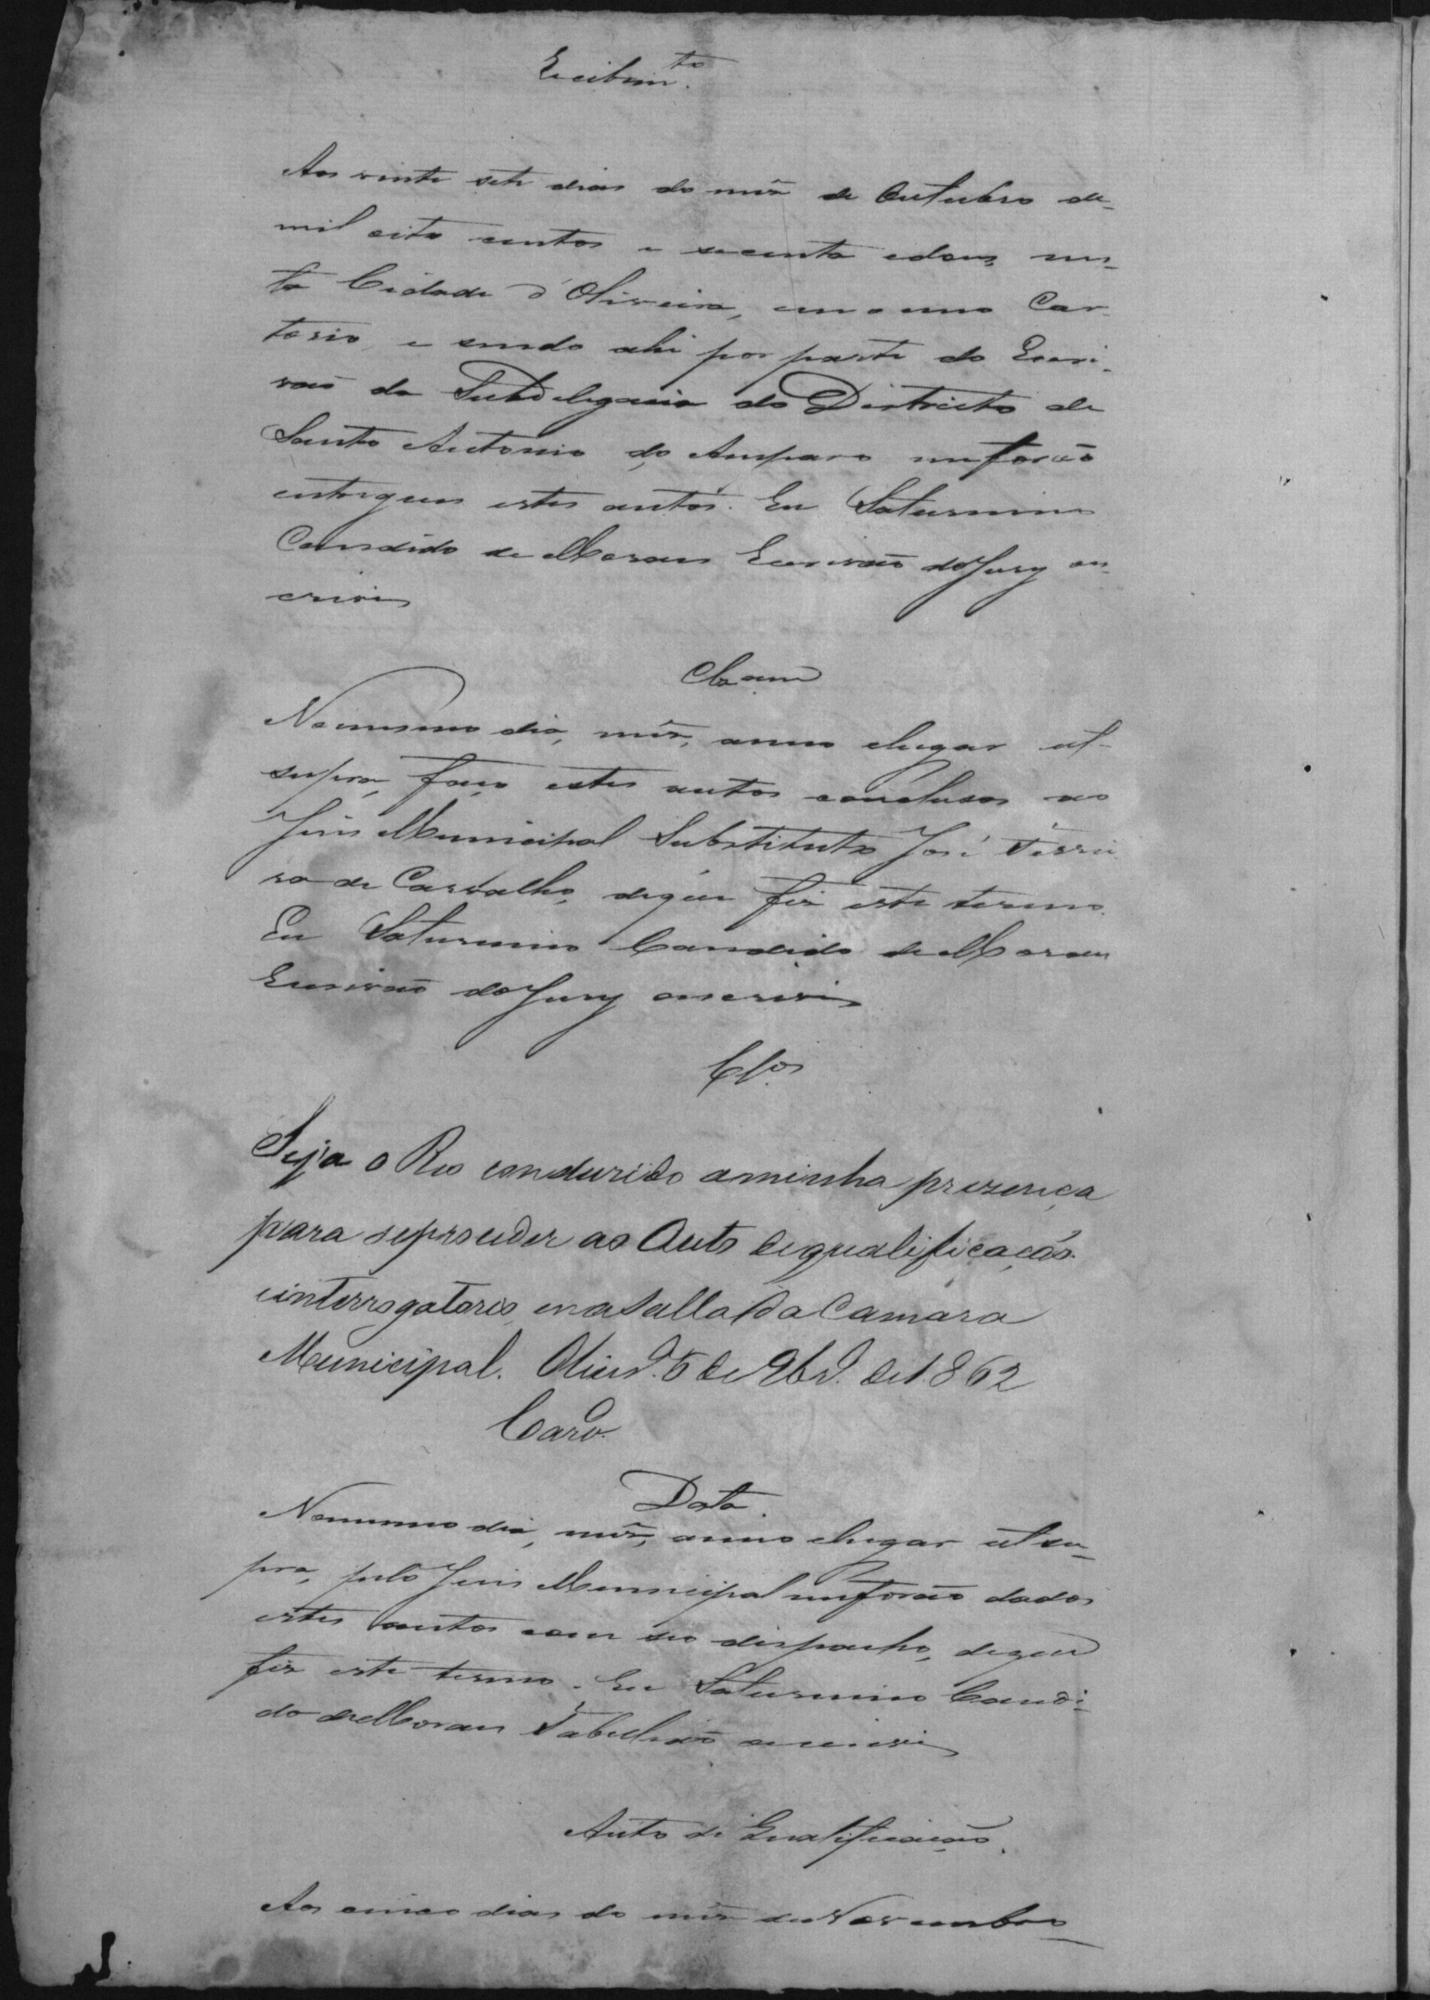 Recibim.to
Aos vinte sete dias do mês de Outubro de
mil oito centos e secenta edous, nes-
ta Cidade d'Oliveira, em o meu Car-
torio, e sendo ahi por parte do Escri-
vaõ da Subdelegacia do Districto de
Santo Antonio do Amparo meforaõ
entregues estes autos. Eu Saturnino
Candido de Moraes Escrivaõ do Jury os-
crivi
Clsam
Nomesmo dia, mês, anno elugar ut-
supra, faço estes autos conclusos ao
Juis Municipal Substituto José Ferrei
ra de Carvalho, deque fiz este termo.
Eu Saturnino Candido de Moraes
Escrivaõ do Jury oscrivi
Cl.os
Seja o Reo condusido aminha prezença
para seproceder ao Auto dequalificaçaõ
einterrogatorio, enasalla da Camara
Municipal. Olivr.ª 5 de 9br.º de 1862
Carv.º
Data
Nomesmo dia, mês, anno elugar utsu-
pra, pelo Juis Municipal meforaõ dados
estes autos com seo despacho, deque
fiz este termo. Eu Saturnino Candi-
do de Moraes Tabelliaõ oscrevi
Auto de Qualificação.
Aos cinco dias do mês de Novembro